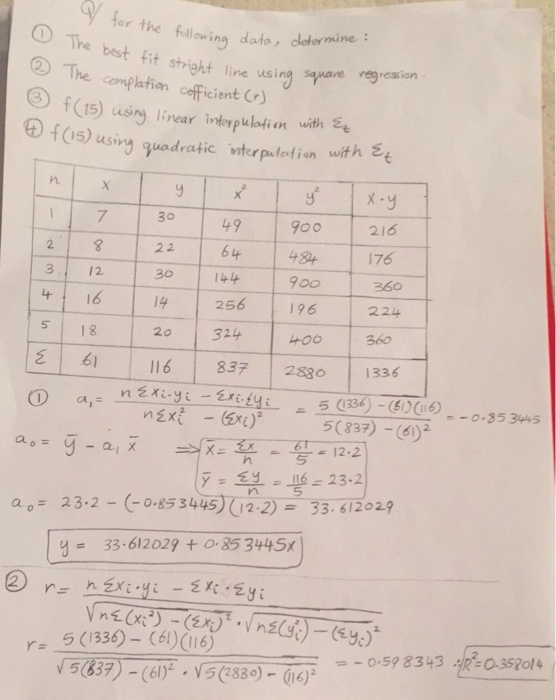 Q/ for the following data, determine :
① The best fit stright line using square regression.
② The complation cofficient (r)
③ f(15) using linear interpulation with Σt
④ f(15) using quadratic interpulation with Σt
n x y x² y² x·y
1 7 30 49 900 216
2 8 22 64 484 176
3 12 30 144 900 360
4 16 14 256 196 224
5 18 20 324 400 360
Σ 61 116 837 2880 1336
① a₁ = (n Σxi·yi - Σxi·Σyi) / (nΣxi² - (Σxi)²) = (5 (1336) - (61)(116)) / (5(837) - (61)²) = -0.853445
a₀ = ȳ - a₁ x̄ ⟹ x̄ = Σx/n = 61/5 = 12.2
ȳ = Σy/n = 116/5 = 23.2
a₀ = 23.2 - (-0.853445)(12.2) = 33.612029
y = 33.612029 + 0.853445x
② r = (n Σxi·yi - Σxi·Σyi) / (√nΣ(xi²) - (Σxi)² · √nΣ(yi²) - (Σyi)²)
r = (5(1336) - (61)(116)) / (√5(837) - (61)² · √5(2880) - (116)²) = -0.598343 ∴ R² = 0.358014